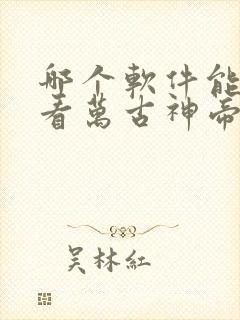 哪个軟件能
看萬古神帝
吴林紅